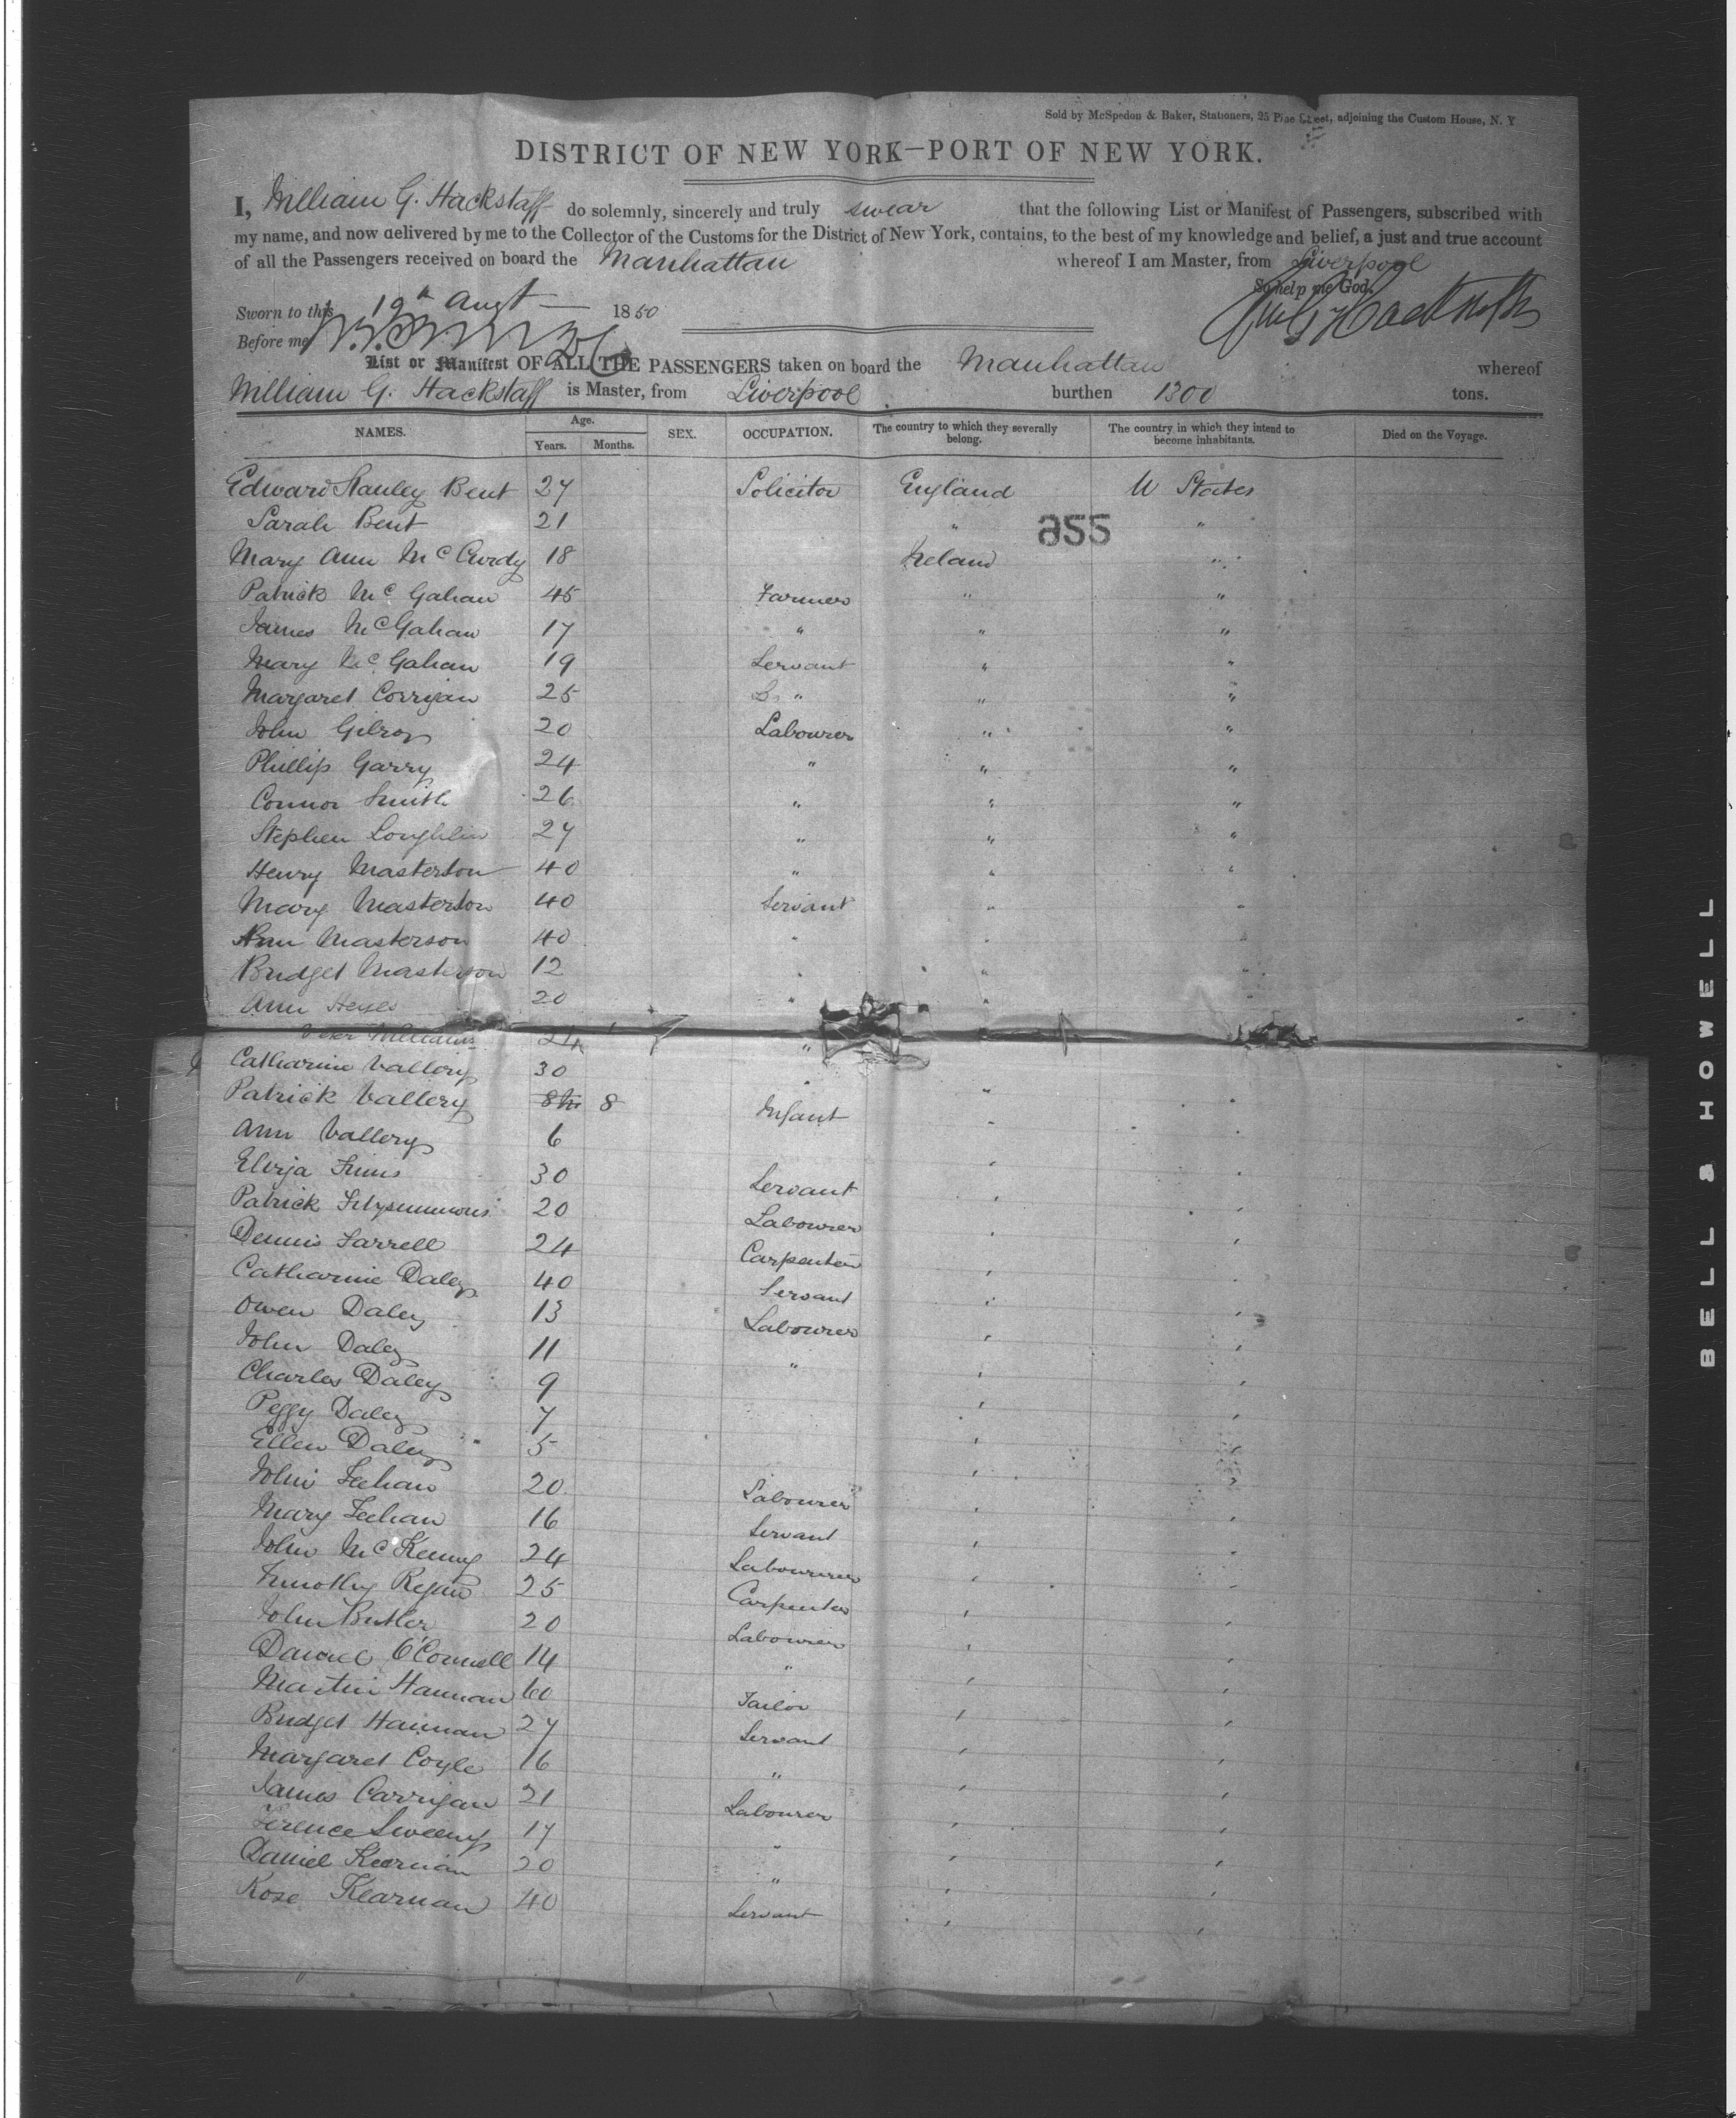 Sold by McSpedon & Baker, Stationers, 25 Pine Street, adjoining the Custom House, N. Y
DISTRICT OF NEW YORK—PORT OF NEW YORK.
I, William G. Hackstaff do solemnly, sincerely and truly swear that the following List or Manifest of Passengers, subscribed with
my name, and now delivered by me to the Collector of the Customs for the District of New York, contains, to the best of my knowledge and belief, a just and true account
of all the Passengers received on board the Manhattan whereof I am Master, from Liverpool
So help me God.
Sworn to this 19th Augt 1850
Wm G Hackstaff
Before me
List or Manifest OF ALL THE PASSENGERS taken on board the Manhattan whereof
William G. Hackstaff is Master, from Liverpool burthen 1300 tons.
NAMES. Age. Years. Months. SEX. OCCUPATION. The country to which they severally belong. The country in which they intend to become inhabitants. Died on the Voyage.
Edward Stanley Bent 27 Solicitor England U States
Sarah Bent 21 " "
255
Mary Ann McCurdy 18 Ireland "
Patrick McGahan 45 Farmer " "
James McGahan 17 " " "
Mary McGahan 19 Servant " "
Margaret Corrigan 25 " " "
John Gilroy 20 Labourer " "
Phillip Garry 24 " " "
Connor Smith 26 " " "
Stephen Loughlin 27 " " "
Henry Masterson 40 " " "
Mary Masterson 40 Servant " "
Ann Masterson 40 " " "
Bridget Masterson 12 " " "
Ann Heyes 20 " "
Peter Williams 24 "
Catharine Vallery 30 " "
Patrick Vallery 8 Infant " "
Ann Vallery 6 " "
Eliza Finns 30 Servant " "
Patrick Fitzsimmons 20 Labourer " "
Dennis Farrell 24 Carpenter " "
Catharine Daley 40 Servant " "
Owen Daley 13 Labourer " "
John Daley 11 " " "
Charles Daley 9 " "
Peggy Daley 7 " "
Ellen Daley 5 " "
John Feehan 20 Labourer " "
Mary Feehan 16 Servant " "
John McKenny 24 Labourer " "
Timothy Regan 25 Carpenter " "
John Butler 20 Labourer " "
Daniel O'Connell 14 " " "
Martin Hannan 60 Tailor " "
Bridget Hannan 27 Servant " "
Margaret Coyle 16 " " "
James Carrigan 21 Labourer " "
Terence Sweeny 17 " " "
Daniel Kearnan 20 " " "
Rose Kearnan 40 Servant " "
BELL & HOWELL